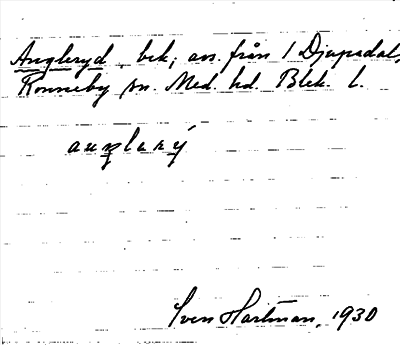 Angleryd, bek, avs. från 1 Djupadal,
Ronneby sn. Med. hd. Blek. l.
Sven Hartman, 1930